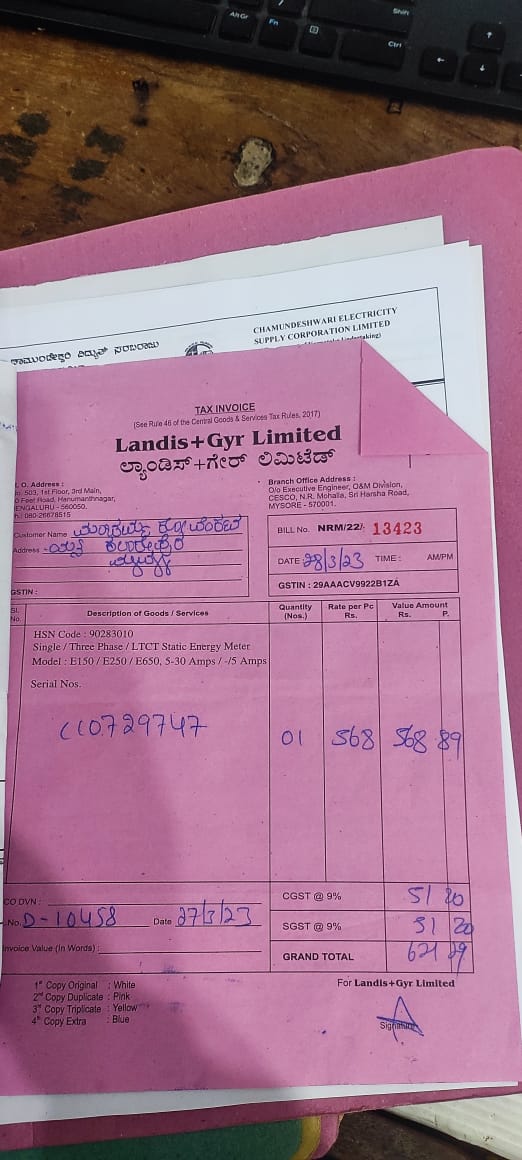 Alt Gr
Fn
Ctrl
Shift
CHAMUNDESHWARI ELECTRICITY
SUPPLY CORPORATION LIMITED
TAX INVOICE
(See Rule 46 of the Central Goods & Services Tax Rules, 2017)
Landis+Gyr Limited
ಲ್ಯಾಂಡಿಸ್+ಗೇರ್ ಲಿಮಿಟೆಡ್
. O. Address :
503, 1st Floor, 3rd Main,
Feet Road, Hanumanthnagar,
ENGALURU - 560050.
080-26678515
Branch Office Address :
O/o Executive Engineer, O&M Division,
CESCO, N.R. Mohalla, Sri Harsha Road,
MYSORE - 570001.
Customer Name
Address
GSTIN :
BILL No. NRM/22/- 13423
DATE 28/3/23 TIME : AM/PM
GSTIN : 29AAACV9922B1ZA
Sl. No. Description of Goods / Services Quantity (Nos.) Rate per Pc Rs. Value Amount Rs. P.
HSN Code : 90283010
Single / Three Phase / LTCT Static Energy Meter
Model : E150 / E250 / E650, 5-30 Amps / -/5 Amps
Serial Nos.
01 568 568 89
CGST @ 9% 51 20
SGST @ 9% 51 20
GRAND TOTAL
CO DVN :
.No. D-10458 Date 27/3/23
Invoice Value (In Words) :
1st Copy Original : White
2nd Copy Duplicate : Pink
3rd Copy Triplicate : Yellow
4th Copy Extra : Blue
For Landis+Gyr Limited
Signature